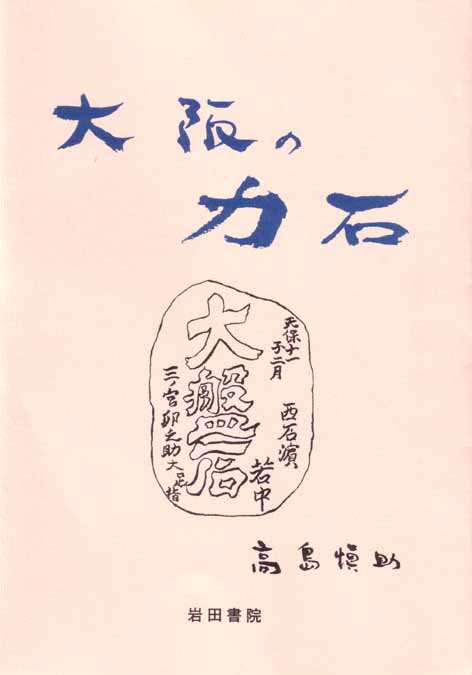 大阪の
力石
天保十一
子二月
西石濱
若中
大盤石
三ノ宮卯之助大足指
高島愼助
岩田書院